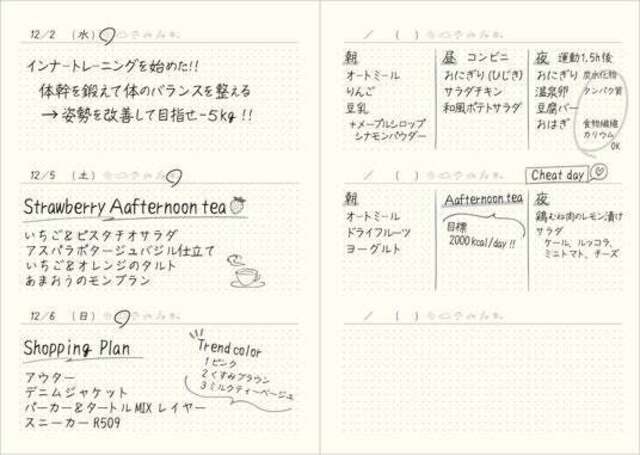 12/2 (水)
インナートレーニングを始めた!!
体幹を鍛えて体のバランスを整える
→ 姿勢を改善して目指せ-5kg !!
12/5 (土)
Strawberry Aafternoon tea
いちご&ピスタチオサラダ
アスパラポタージュバジル仕立て
いちご&オレンジのタルト
あまおうのモンブラン
12/6 (日)
Shopping Plan
アウター
デニムジャケット
パーカー&タートルMIX レイヤー
スニーカー R509
Trend color
1 ピンク
2 くすみブラウン
3 ミルクティーベージュ
/ ( )
朝
オートミール
りんご
豆乳
+メープルシロップ
シナモンパウダー
昼 コンビニ
おにぎり(ひじき)
サラダチキン
和風ポテトサラダ
夜 運動1.5h後
おにぎり 炭水化物
温泉卵 タンパク質
豆腐バー
おはぎ 食物繊維
カリウム
OK
/ ( )
Cheat day
朝
オートミール
ドライフルーツ
ヨーグルト
Aafternoon tea
目標
2000kcal/day !!
夜
鶏むね肉のレモン漬け
サラダ
ケール、ルッコラ、
ミニトマト、チーズ
/ ( )